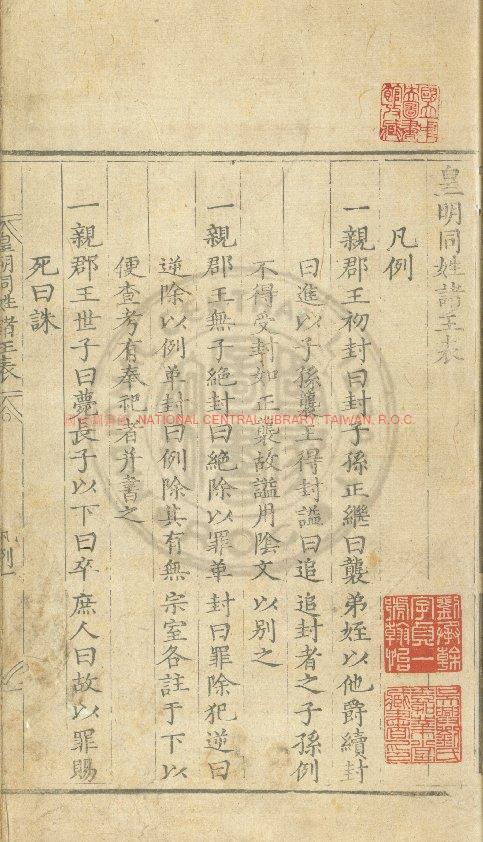 皇明同姓諸王表
凡例
一親郡王初封曰封子孫正繼曰襲弟姪以他爵續封
曰進以子孫襲王得封謚曰追追封者之子孫例
不得受封如正襲故謚用陰文以別之
一親郡王無子絕封曰絕除以罪革封曰罪除犯逆曰
逆除以例革封曰例除其有無宗室各註于下以
便查考有奉祀者并書之
一親郡王世子曰薨長子以下曰卒庶人曰故以罪賜
死曰誅
皇明同姓諸王表
凡例一
NATIONAL CENTRAL LIBRARY, TAIWAN, R.O.C.
劉承幹
字貞一
號翰怡
吳興劉氏
嘉業堂
藏書印